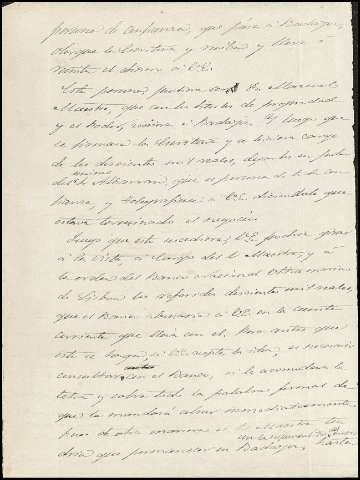 persona de confianza, que pase á Badajoz,
otorgue la Escritura y reciba y lleve á
el dinero á V.E.
Esta persona pudiera ser D. Manuel
Maestre, que con los titulos de propiedad
y el Poder, viniera á Badajoz. Y luego que
se firmara la Escritura y se hiciera cargo
de los doscientos mil reales, dejarlos en poder
del mismo Albarran, que es persona de toda con-
fianza, y telegrafiara á V.E. diciendole que
estava terminado el negocio.
Luego que esto sucediera, V.E. podria girar
á la vista, á cargo del S. Maestre, y á
la orden del Banco Nacional Ultramarino
de Lisboa los referidos doscientos mil reales,
que el Banco abonaria á V.E. en la cuenta
corriente que lleva con el. Pero antes que
esto se haga, si V.E. acepta la idea, es necesario
consultar con el Banco, si le acomodara la
letra y sobre todo la palabra formal de
que la mandará cobrar inmediatamente.
Pues de otra manera el S. Maestre ten
dria que permanecer en Badajoz, hasta